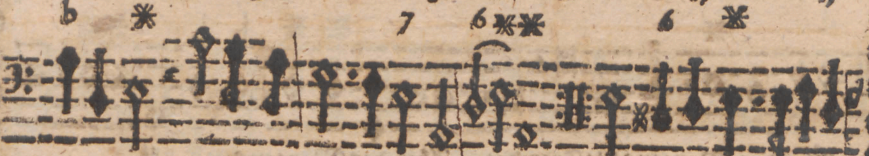 b 7 6 6